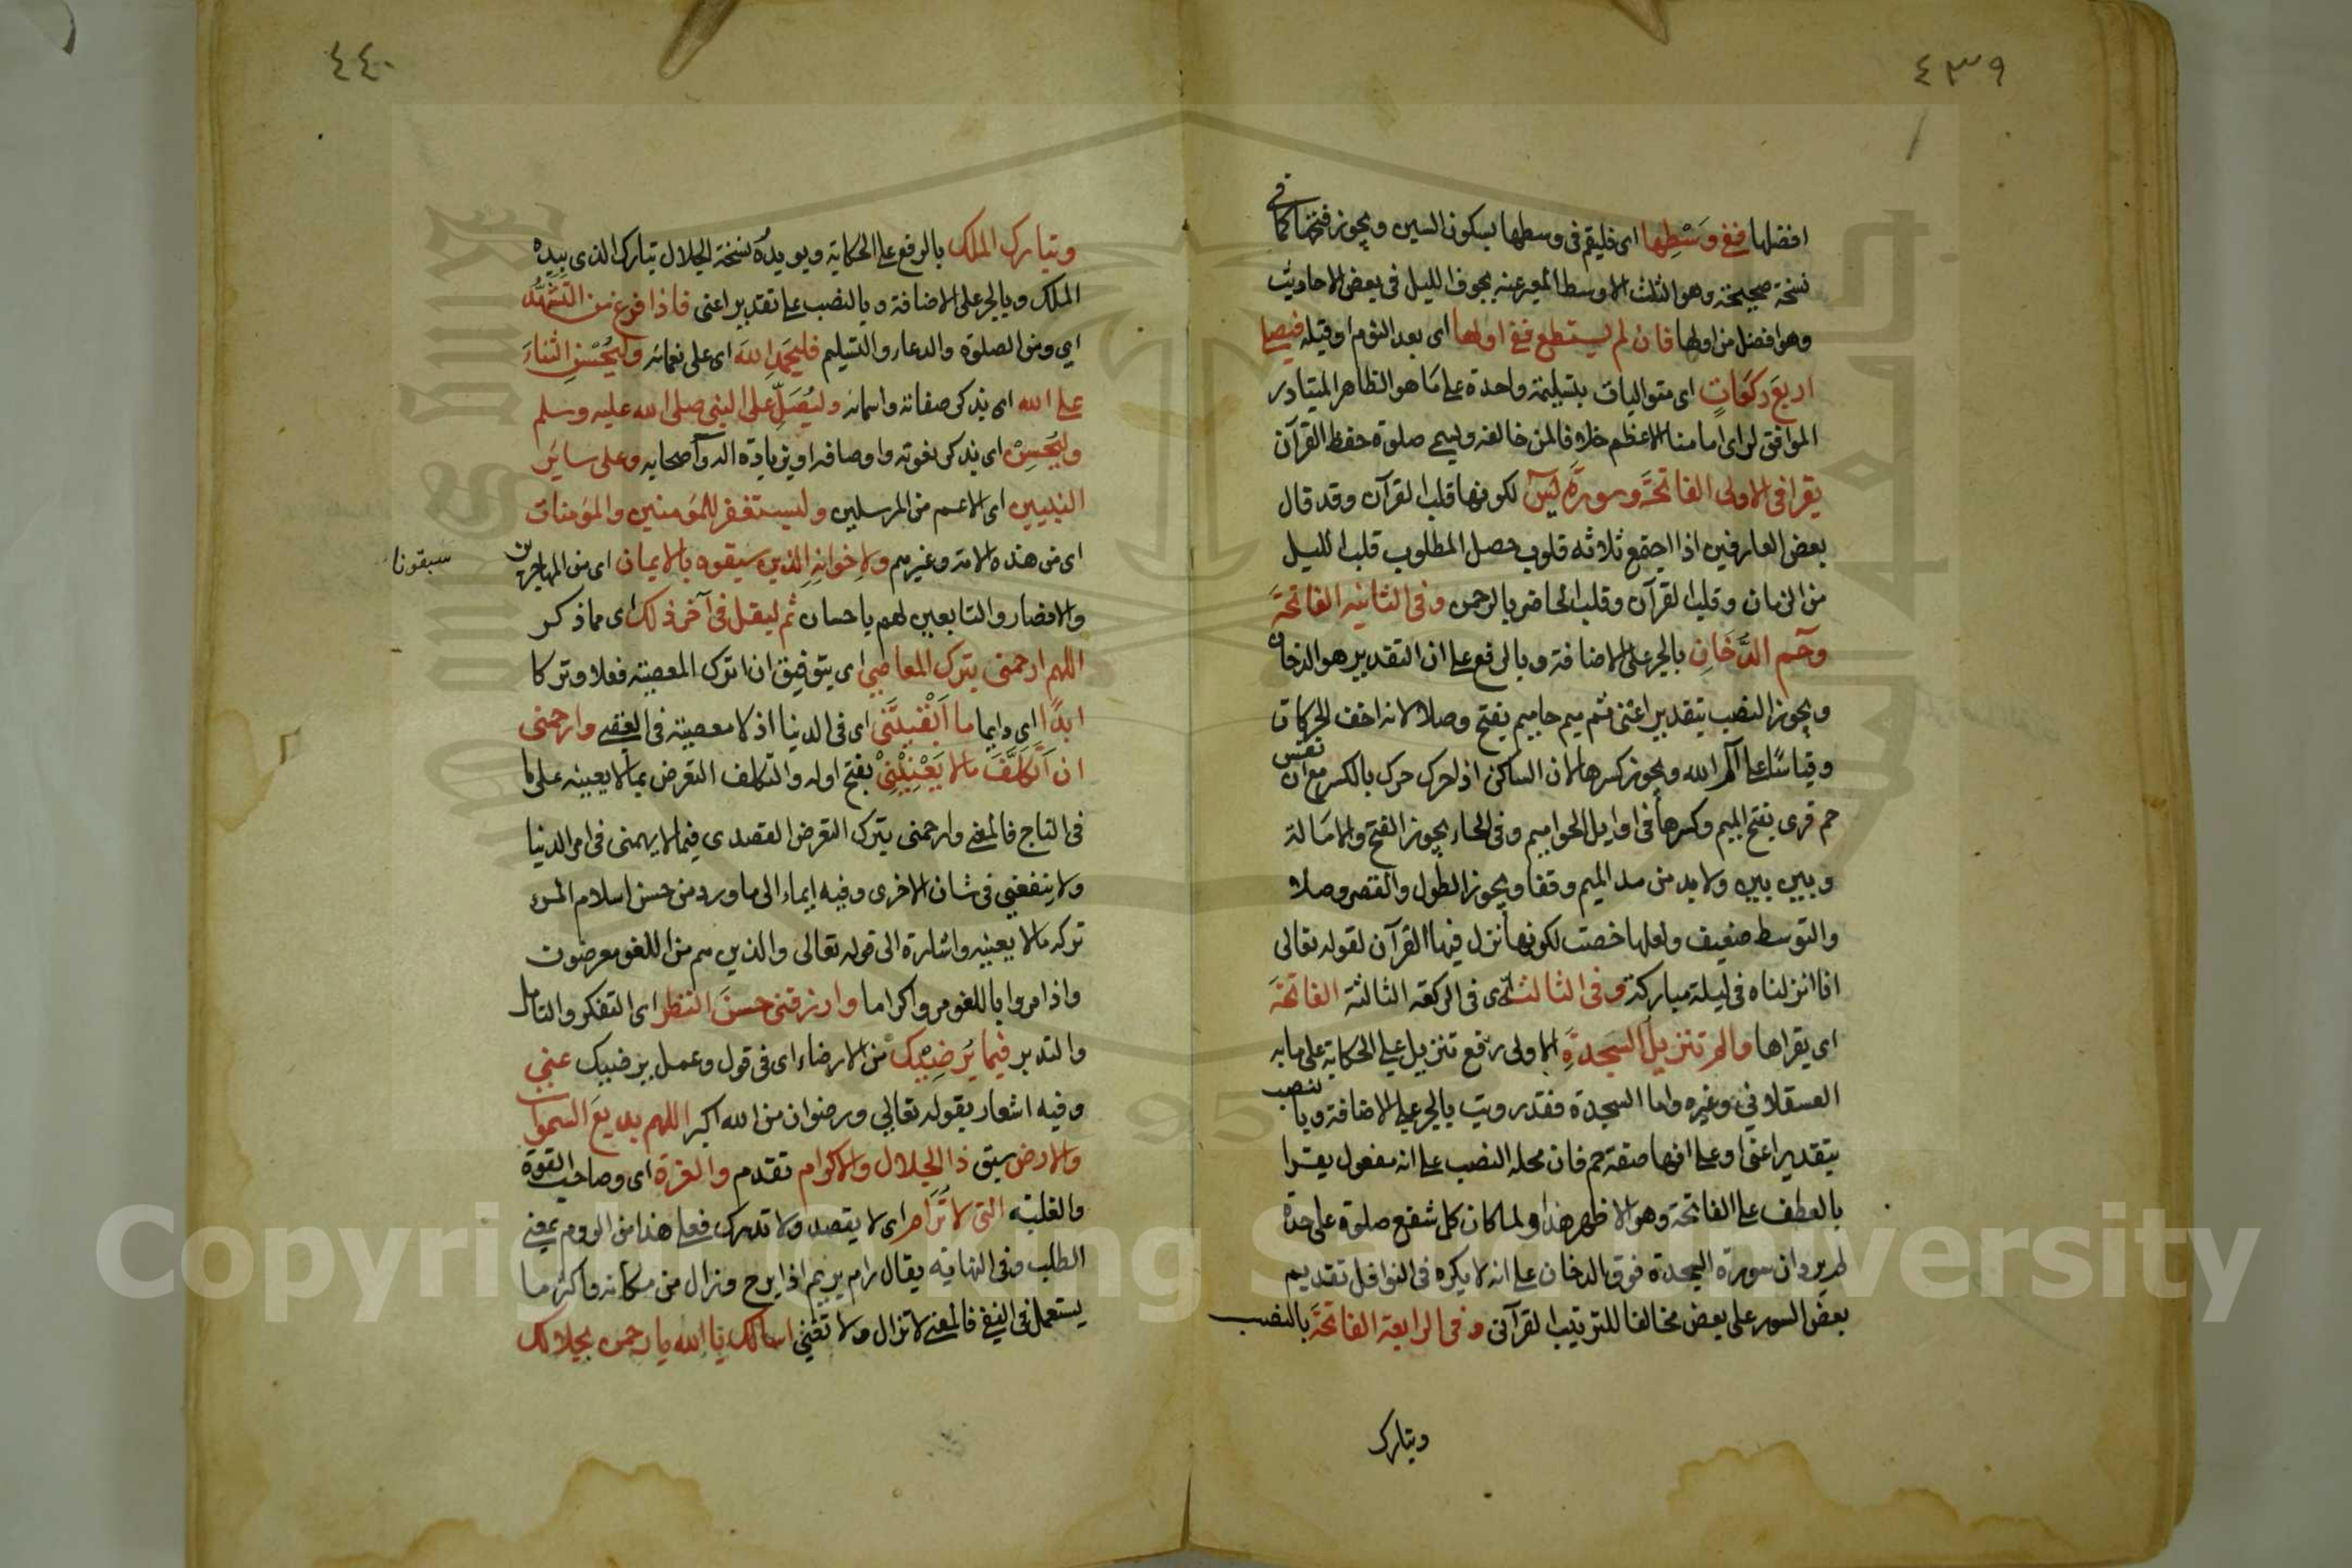 ٤٣٩
افضلها ففي وَسْطِها اى فليقم فى وسطها بسكون السين ويجوز فتحها كما في
نسخة صحيحة وهو الثلث الاوسط المعبر عنه بجوف الليل فى بعض الاحاديث
وهو افضل من اولها فان لم يستطع ففي اولها اى بعد النوم او قبله فيصلي
اربعَ ركعَاتٍ اى متواليات بتسليمة واحدة على مَا هو الظاهر المتبادر
الموافق لراى امامنا الاعظم خلافا لمن خالفه وليسمى صلوة حفظ القرآن
يقرا فى الاولى الفاتحَةَ وسورةَ يسٓ لكونها قلب القرآن وقد قال
بعض العارفين اذا اجتمع ثلاثه قلوب حصل المطلوب قلب الليل
من الزمان وقلب القرآن وقلب الحاضر بالرحمن وفى الثانيه الفاتحَةَ
وحٓم الدُّخَانِ بالجر على الاضافة وبالرفع على ان التقدير هو الدخان
ويجوز النصب بتقدير اعنى ثم ميم حاميم بفتح وصلا لانه اخف الحركات
وقياسًا على آلم الله ويجوز كسرها لان الساكن اذا حرك حرك بالكسر مع ان نفس
حم قرى بفتح الميم وكسرها فى اوايل الحواميم وفى الحاء يجوز الفتح والامَالة
وبين بين ولا بد من مد الميم وقفا ويجوز الطول والقصر وصلا
والتوسط ضعيف ولعلها خصت لكونها نزل فيها القرآن لقوله تعالى
انا انزلناه فى ليلة مباركة وفى الثالثة اى فى الركعة الثالثة الفاتحَةَ
اى يقراها والم تنزيلُ السجدةِ الاولى رفع تنزيل على الحكاية على ما به
العسقلانى وغيره واما السجدة فقد رويت بالجر على الاضافة وبالنصب
بتقدير اعنى او على انها صفة حم فان محله النصب على انه مفعول يقرا
بالعطف على الفاتحة وهو الاظهر هذا ولما كان كل شفع صلوة على حدة
لم يرد ان سورة السجدة فوق الدخان على انه لا يكره فى النوافل تقديم
بعض السور على بعض مخالفا للترتيب القرآنى وفى الرابعة الفاتحَةَ بالنصب
وتبارك
٤٤٠
وتبارك الملك بالرفع على الحكاية ويويده نسخة الجلال تبارك الذى بيده
الملك وبالجر على الاضافة وبالنصب على تقدير اعنى فاذا فرغ من التشهُّد
اي ومن الصلوة والدعاء والتسليم فليحمَدِ اللهَ اى على نعمائه وليُحْسِنِ الثناءَ
على الله اى بذكر صفاته واسمائه وليُصَلِّ على النبى صلى الله عليه وسلم
وليُحْسِنْ اى بذكر نعوته واوصافه او بزيادة اله وأصحابه وعلى سائر
النبيين اى الاعم من المرسلين وليستغفر للمؤمنين والمؤمنات
اى من هذه الامة وغيرهم ولاخوانِهِ الذين سبقوه بالايمان اى من المهاجرين
سبقونا
والانصار والتابعين لهم باحسان ثم ليقل فى آخر ذلك اى مما ذكر
اللهم ارحمنى بترك المعاصي اى بتوفيق ان اترك المعصية فعلا وتركا
ابدًا اى دايما ما اَبْقَيْتَنى اى فى الدنيا اذ لا معصية فى العقبى وارحمنى
ان اَتَكَلَّفَ مالا يَعْنِيْنِيْ بفتح اوله والتكلف التعرض بمالا يعنيه على ما
فى التاج فالمعنى وارحمنى بترك التعرض القصدى فيما لا يهمنى فى امر الدنيا
ولا ينفعنى فى شان الاخرى وفيه ايماء الى ما ورد من حسن اسلام المرء
تركه مالا يعنيه واشارة الى قوله تعالى والذين هم من اللغو معرضون
واذا مروا باللغو مروا كراما وارزقنى حسنَ النظر اى التفكر والتامل
والتدبر فيما يُرضِيْك من الارضاء اى فى قول وعمل يرضيك عني
وفيه اشعار بقوله تعالى ورضوان من الله اكبر اللهم بديعَ السموات
والارض سبق ذا الجلال والاكرام تقدم والعزة اى وصاحب القوة
والغلبة التى لا تُرَام اى لا يقصد ولا تدرك فعلى هذا من الروم بمعنى
الطلب وفى النهاية يقال رام يريم اذا برح وزال من مكانه واكثر ما
يستعمل فى النفى فالمعنى لا تزال ولا تفنى اسالك يا الله يا رحمن بجلالك
Copyright © King Saud University